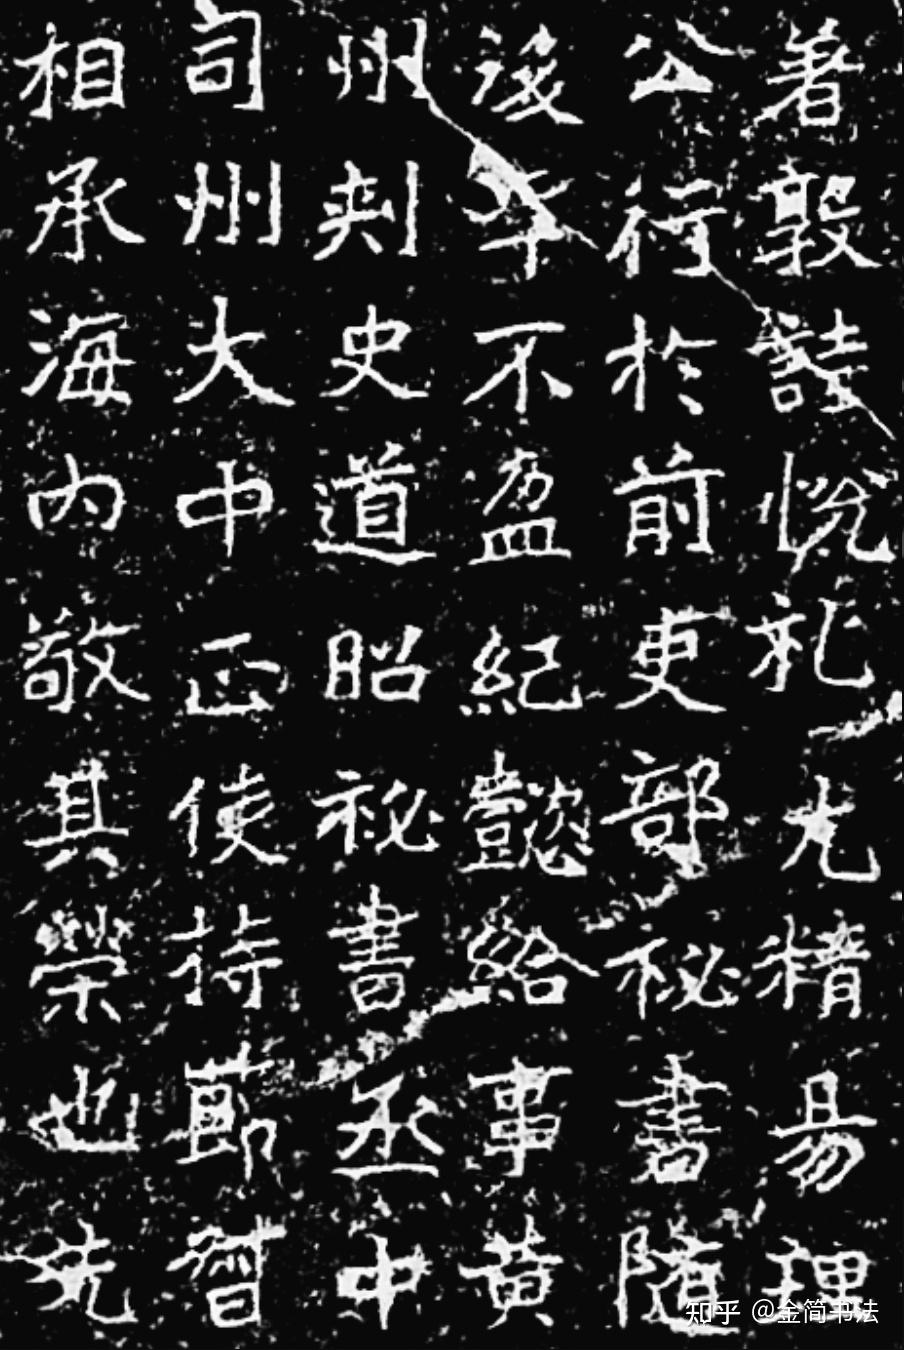 著敦詩悅礼尤精易理
公行於前吏部祕書隨
後年不盈紀懿給事黃
州刾史道昭祕書丞中
司州大中正使持節督
相承海内敬其榮也先
知乎 @金简书法